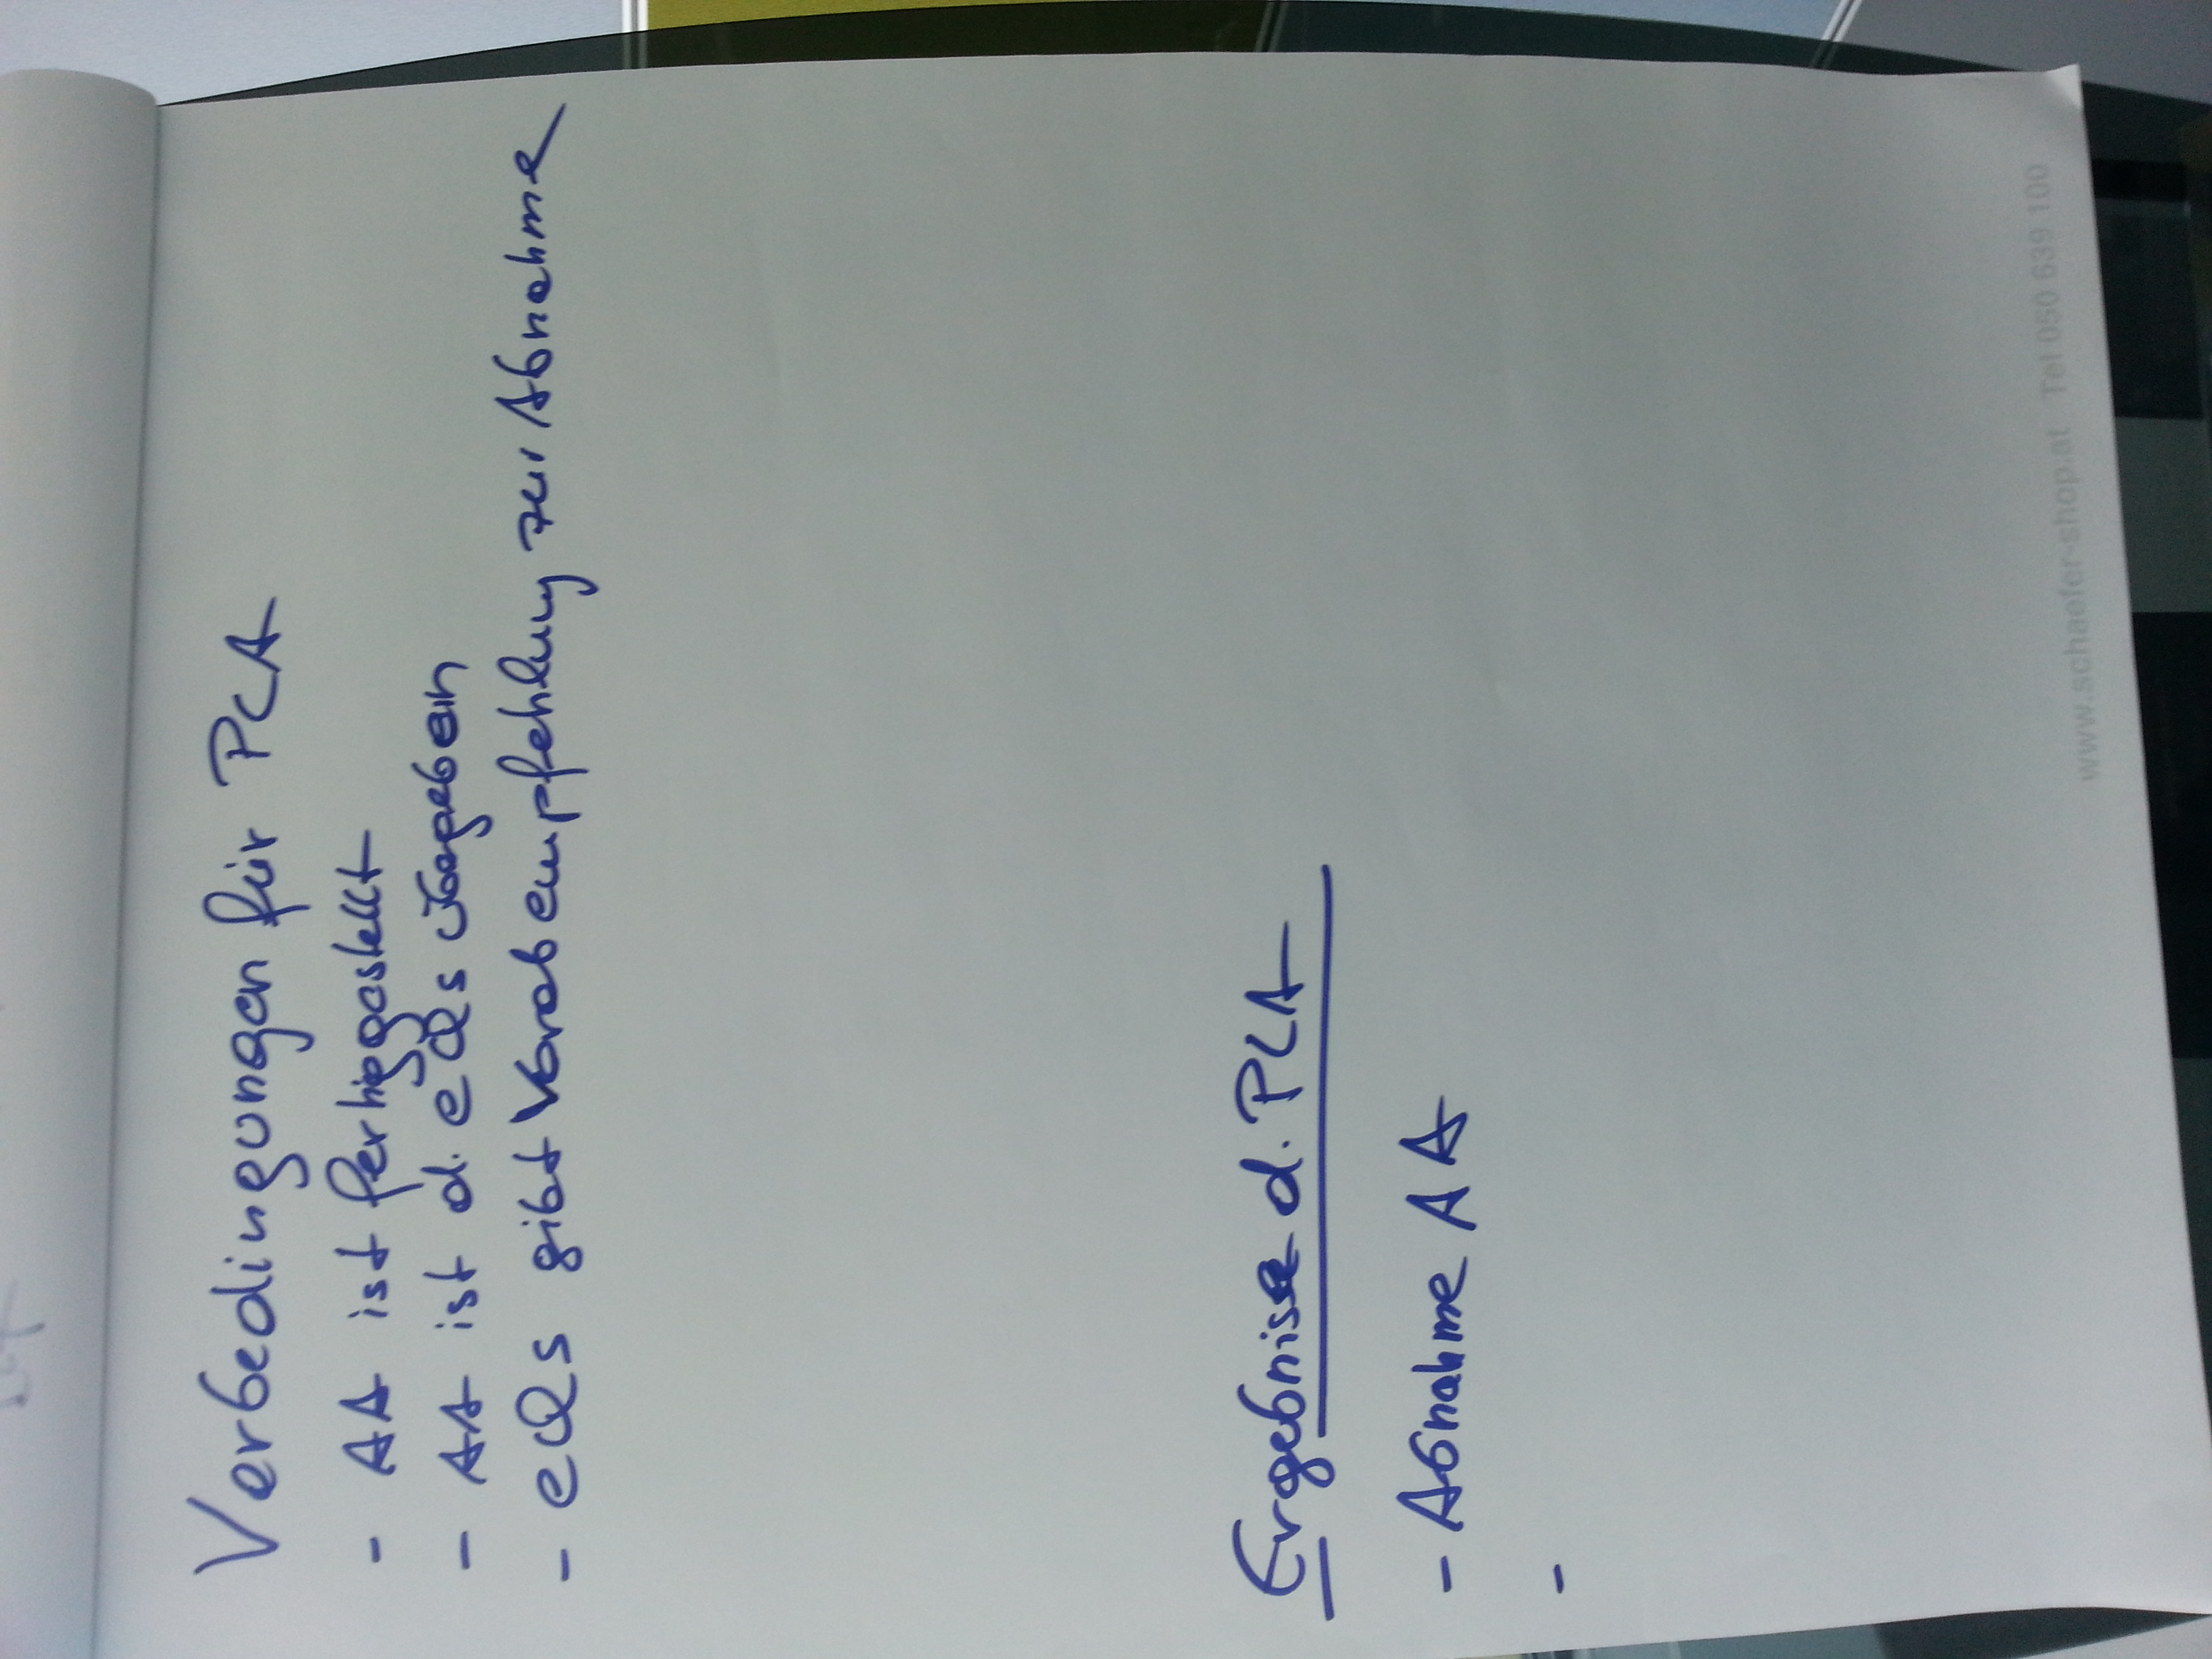 Vorbedingungen für PCA
- AA ist fertiggestellt
- AA ist d. eQs übergeben
- eQs gibt Vorabempfehlung zur Abnahme
Ergebnisse d. PCA
- Abnahme AA
-
www.schaefer-shop.at Tel 050 639 100